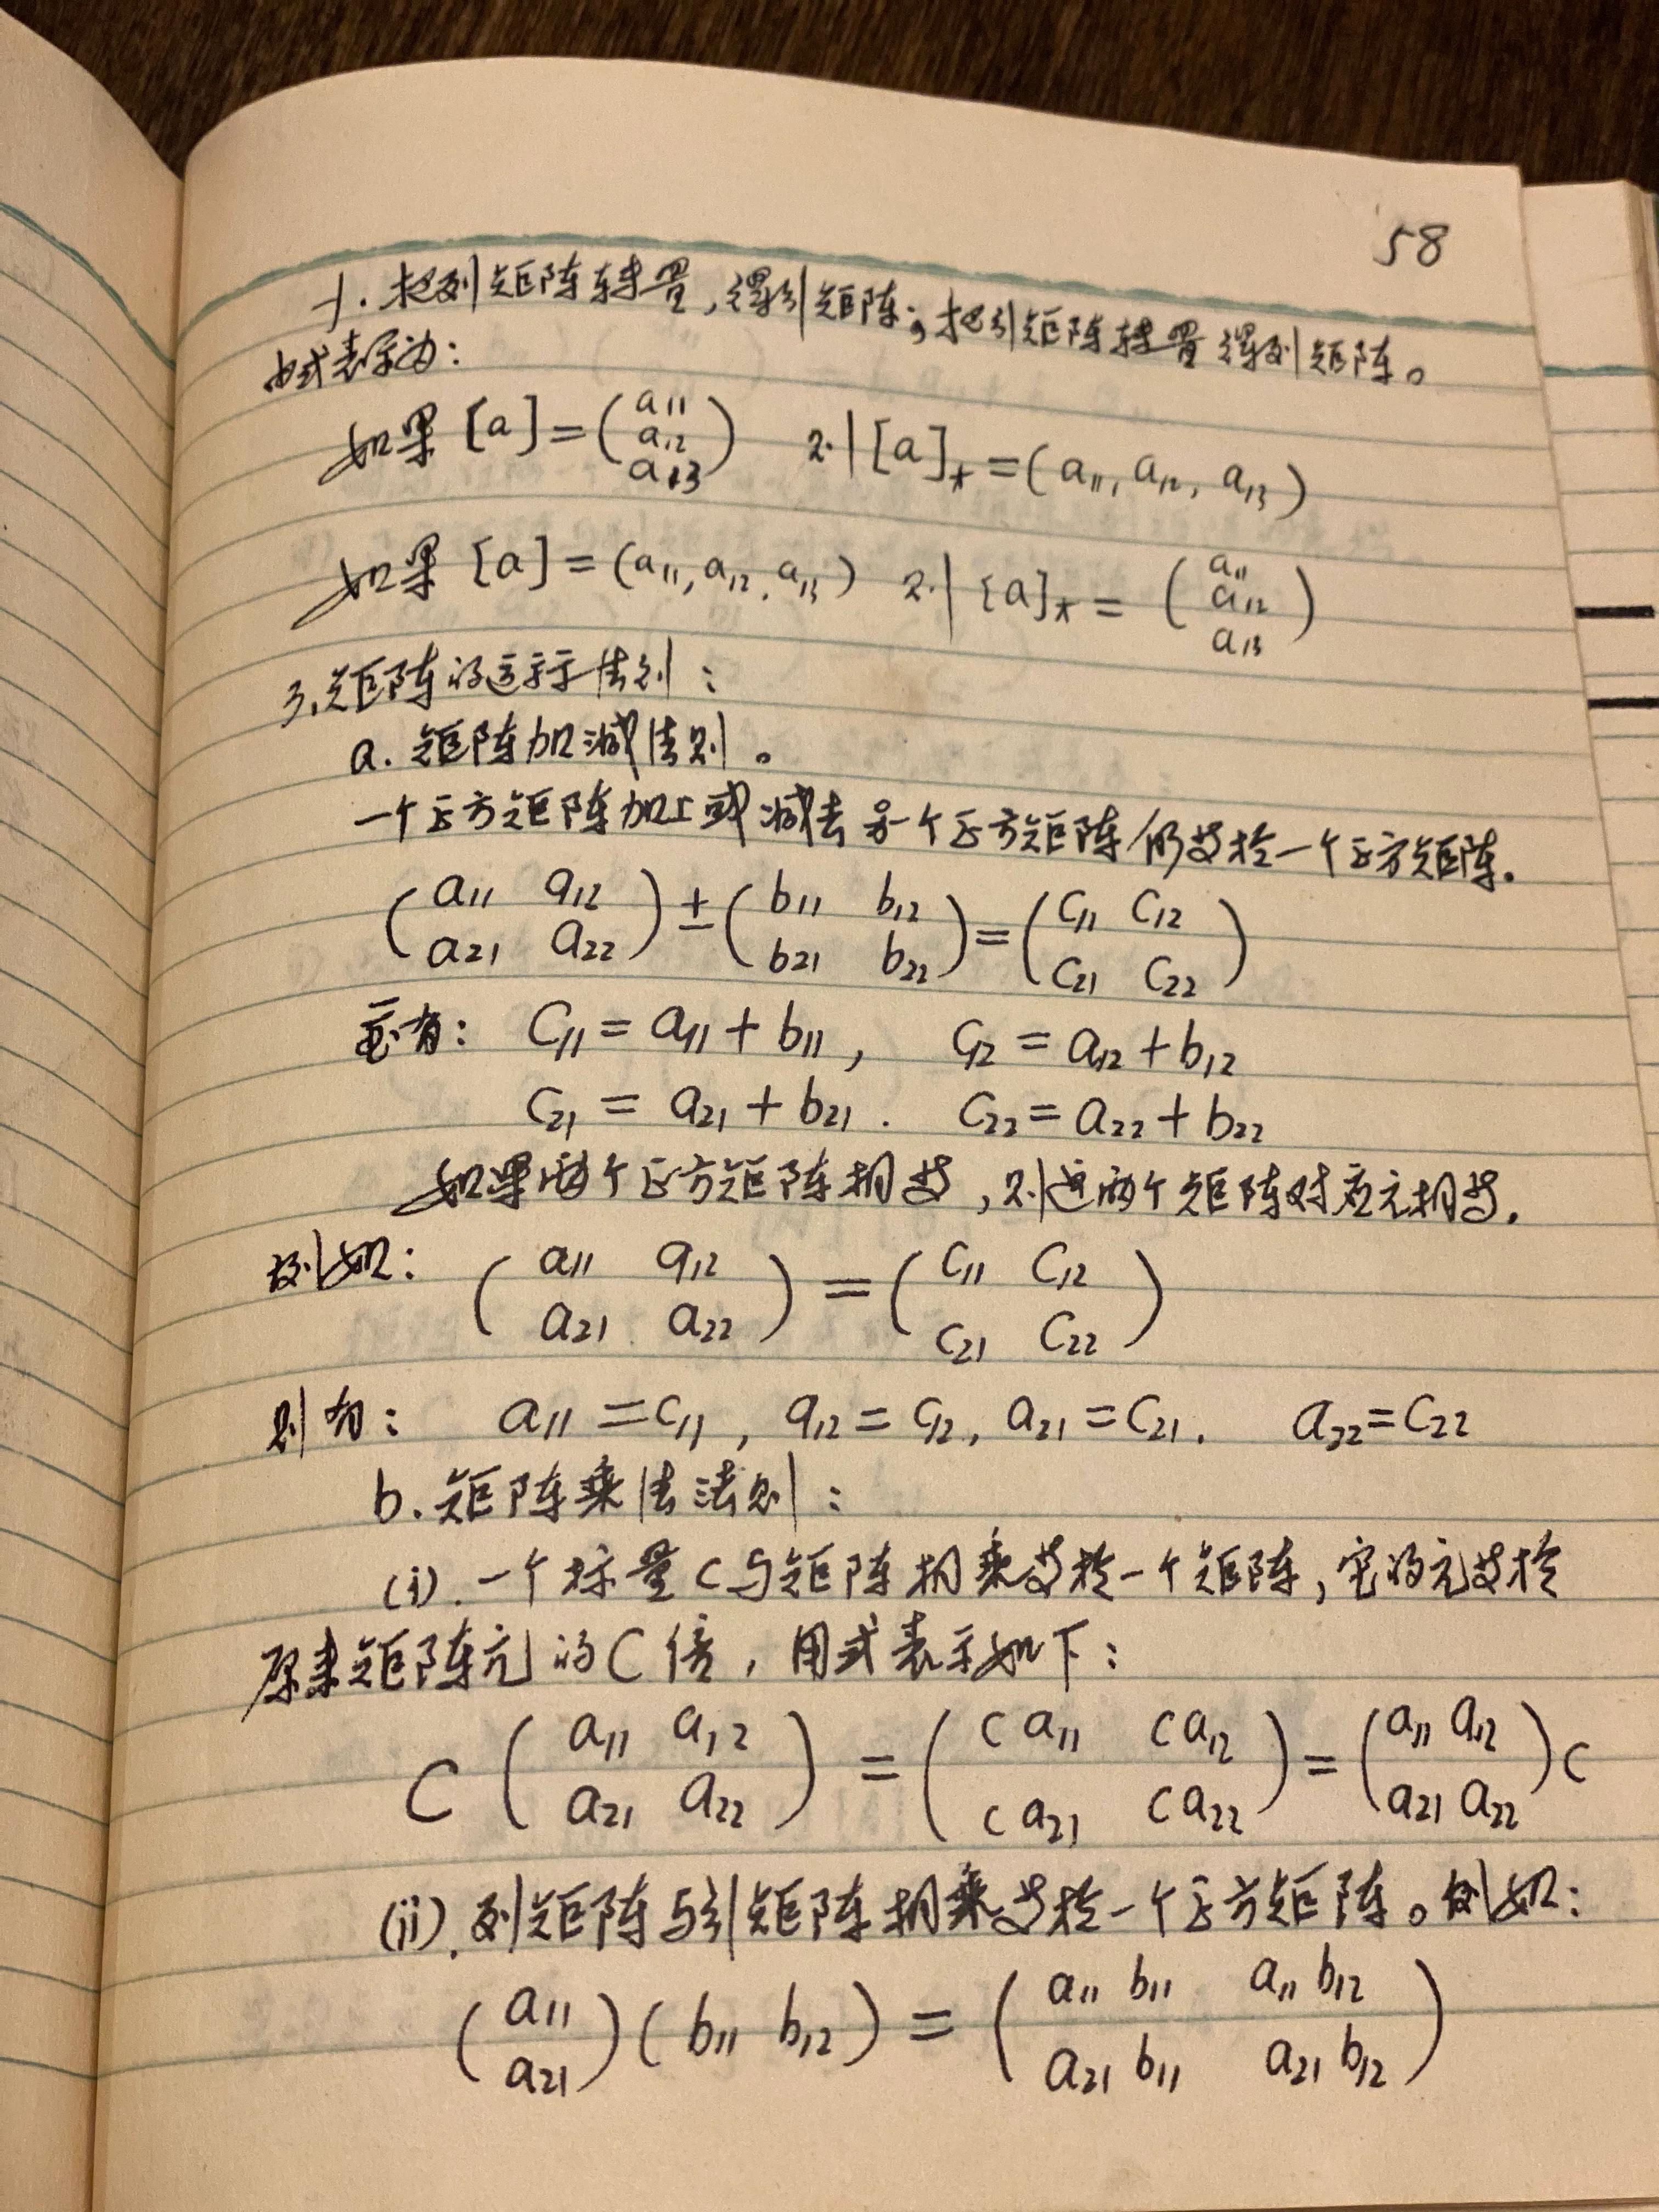 58
f. 把列矩阵转置,得引矩阵;把引矩阵转置得列矩阵。
由式表示为:
如果 [a]=(a11 a12 a13) 则[a]*=(a11, a12, a13)
如果 [a]=(a11, a12, a13) 则[a]*=(a11 a12 a13)
3.矩阵的运算法则:
a. 矩阵加减法则。
一个正方矩阵加上或减去另一个正方矩阵仍等于一个正方矩阵.
(a11 a12 a21 a22)±(b11 b12 b21 b22)=(c11 c12 c21 c22)
有: C11=a11+b11, C12=a12+b12
C21=a21+b21. C22=a22+b22
如果两个正方矩阵相等,则这两个矩阵对应元相等.
例如: (a11 a12 a21 a22)=(c11 c12 c21 c22)
则有: a11=c11, a12=c12, a21=c21. a22=c22
b.矩阵乘法法则:
(i).一个标量C与矩阵相乘等于一个矩阵,它的元等于
原来矩阵元的C倍,用式表示如下:
C(a11 a12 a21 a22)=(ca11 ca12 ca21 ca22)=(a11 a12 a21 a22)c
(ii).列矩阵与引矩阵相乘等于一个正方矩阵。例如:
(a11 a21)(b11 b12)=(a11b11 a11b12 a21b11 a21b12)